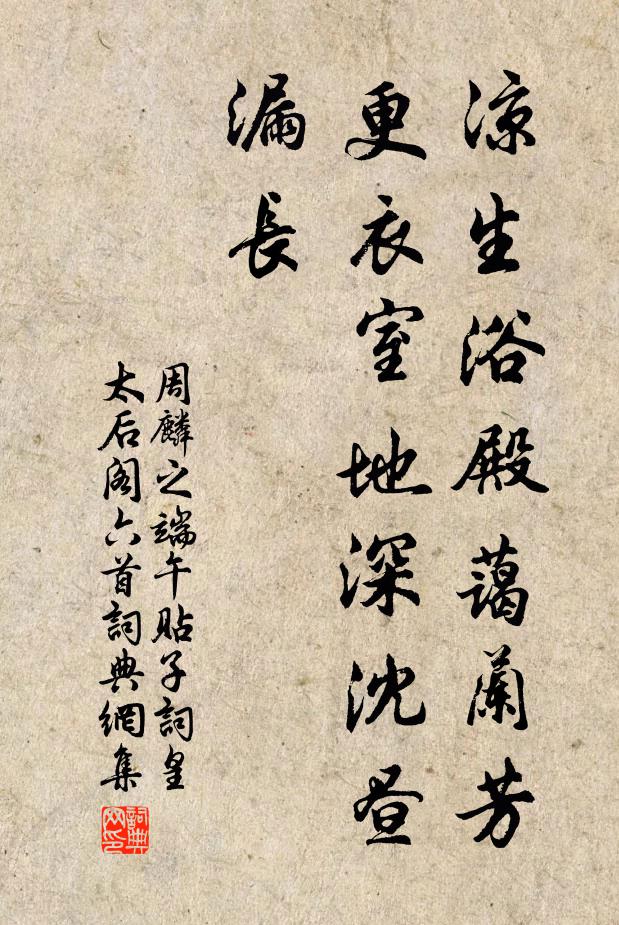 涼生浴殿藹蘭芳
更衣室地深沈晝
漏長
周麟之端午貼子詞皇
太后閣六首詞典網集
詞典
网印